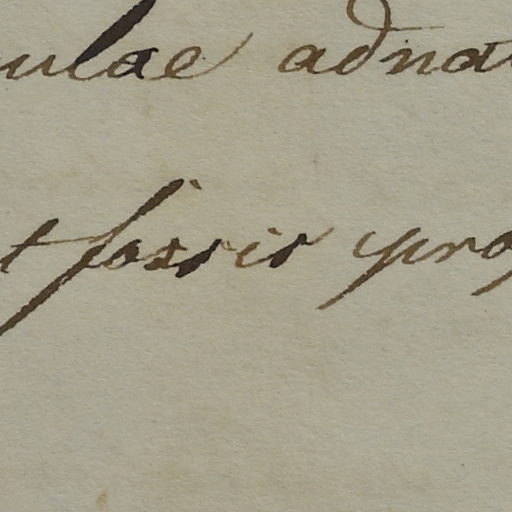 ulae adna
t fossis prop